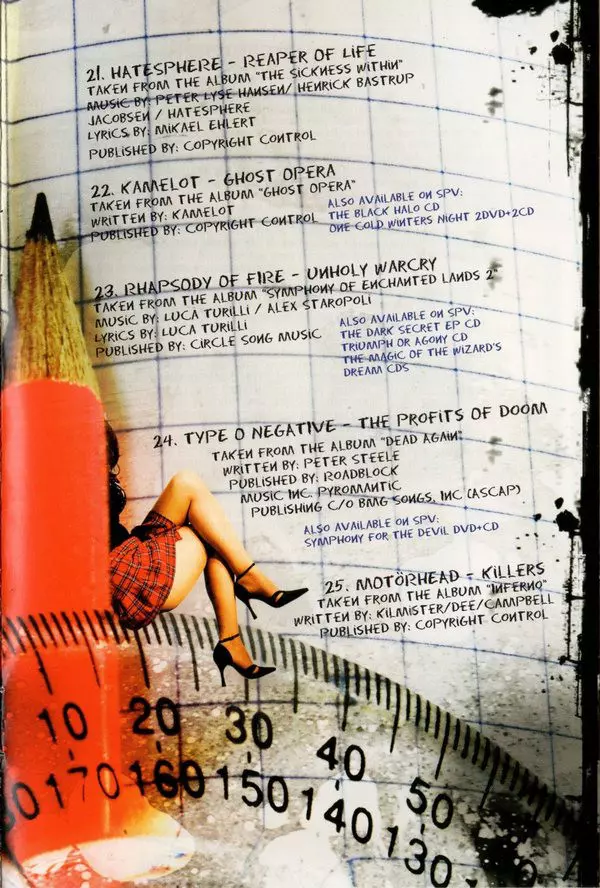 21. HATESPHERE - REAPER OF LIFE
TAKEN FROM THE ALBUM "THE SICKNESS WITHIN"
MUSIC BY: PETER LYSE HANSEN/ HENRICK BASTRUP
JACOBSEN / HATESPHERE
LYRICS BY: MIKAEL EHLERT
PUBLISHED BY: COPYRIGHT CONTROL
22. KAMELOT - GHOST OPERA
TAKEN FROM THE ALBUM "GHOST OPERA"
WRITTEN BY: KAMELOT
PUBLISHED BY: COPYRIGHT CONTROL
ALSO AVAILABLE ON SPV:
THE BLACK HALO CD
ONE COLD WINTERS NIGHT 2DVD+2CD
23. RHAPSODY OF FIRE - UNHOLY WARCRY
TAKEN FROM THE ALBUM "SYMPHONY OF ENCHANTED LANDS 2"
MUSIC BY: LUCA TURILLI / ALEX STAROPOLI
LYRICS BY: LUCA TURILLI
PUBLISHED BY: CIRCLE SONG MUSIC
ALSO AVAILABLE ON SPV:
THE DARK SECRET EP CD
TRIUMPH OR AGONY CD
THE MAGIC OF THE WIZARD'S
DREAM CDS
24. TYPE O NEGATIVE - THE PROFITS OF DOOM
TAKEN FROM THE ALBUM "DEAD AGAIN"
WRITTEN BY: PETER STEELE
PUBLISHED BY: ROADBLOCK
MUSIC INC. PYROMANTIC
PUBLISHING C/O BMG SONGS, INC (ASCAP)
ALSO AVAILABLE ON SPV:
SYMPHONY FOR THE DEVIL DVD+CD
25. MOTÖRHEAD - KILLERS
TAKEN FROM THE ALBUM "INFERNO"
WRITTEN BY: KILMISTER/DEE/CAMPBELL
PUBLISHED BY: COPYRIGHT CONTROL
10 20 30 40 50
80 170 160 150 140 130